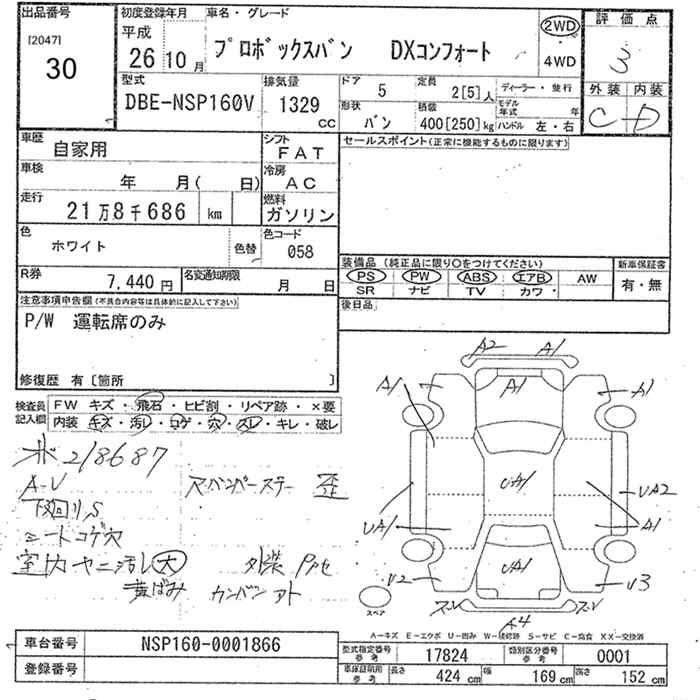 出品番号
[2047]
30
初度登録年月
平成
26 10 月
車名・グレード
プロボックスバン DXコンフォート
2WD
4WD
評価点
3
型式
DBE-NSP160V
排気量
1329
CC
ドア
5
定員
2[5]人
形状
バン
積載
400[250]kg
ディーラー・並行
モデル年式 年
ハンドル 左・右
外装 内装
C D
車歴
自家用
シフト
FAT
車検
年 月( 日)
冷房
AC
走行
21万8千686 km
燃料
ガソリン
色
ホワイト
色替
色コード
058
R券
7,440 円
名変通知期限
月 日
セールスポイント(正常に機能するものに限ります)
装備品(純正品に限り○をつけてください)
新車保証書
PS PW ABS エアB AW
SR ナビ TV カワ
有・無
後日品
注意事項申告欄(不具合内容等は具体的に記入して下さい)
P/W 運転席のみ
修復歴 有〔箇所 〕
検査員記入欄
FW キズ・飛石・ヒビ割・リペア跡・×要
内装 キズ・汚レ・コゲ・穴・スレ・キレ・破レ
218687
A-V
下廻りS
シートコゲ穴
室内ヤニ汚レ(大)
黄ばみ
バンパーステー 歪
外装
カンバンアト
A2 A1
A1 A1 A1
UA1
UA2
UA1 A1
U2 UA1 U3
スペア
A4
A-キズ E-エクボ U-凹み W-補修跡 S-サビ C-腐食 XX-交換済
車台番号
NSP160-0001866
登録番号
型式指定番号
参考
17824
類別区分番号
参考
0001
車庫証明用
参考
長さ
424 cm
幅
169 cm
高さ
152 cm